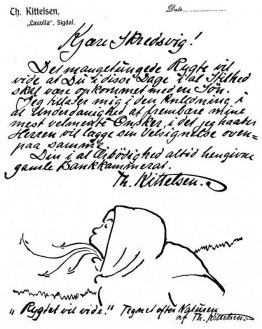 Th. Kittelsen,
"Lauvlia", Sigdal.
Dato
Kjære Skredsvig!
Det mangetungede Rygte vil
vide at Du i disse Dage i al Stilhed
skal være opkommet med en Søn.
Jeg tillater mig i den Anledning i
al Underdanighed at frembære mine
mest velmente Ønsker, i det jeg haaber
Herren vil lægge sin Velsignelse oven-
paa samme.
Din i al Ærbødighed altid hengivne
gamle Dankkammerat.
Th. Kittelsen.
"Rygtet vil vide." Tegnet efter Naturen
af Th. Kittelsen.